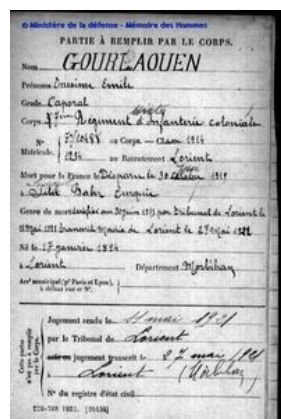 © Ministère de la défense - Mémoire des Hommes
PARTIE À REMPLIR PAR LE CORPS.
Nom GOURLAOUEN
Prénoms Onesime Emile
Grade Caporal
mixte
Corps 7ème Régiment d'Infanterie coloniale
N° au Corps. — Classe 1914
Matricule. 1294 au Recrutement Lorient
Mort pour la France le Disparu le 30 1915
à Sedd Bahr Turquie
Genre de mort par tribunal de Lorient le
transcrit Mairie de Lorient le 27 Mai 1921
Né le 17 janvier 1894
à Lorient Département Morbihan
Arrt municipal (pr Paris et Lyon),
à défaut rue et N°.
Cette partie
n'est pas à remplir
par le Corps.
Jugement rendu le 11 mai 1921
par le Tribunal de Lorient
acte ou jugement transcrit le 27 mai 1921
à Lorient (Morbihan)
N° du registre d'état civil